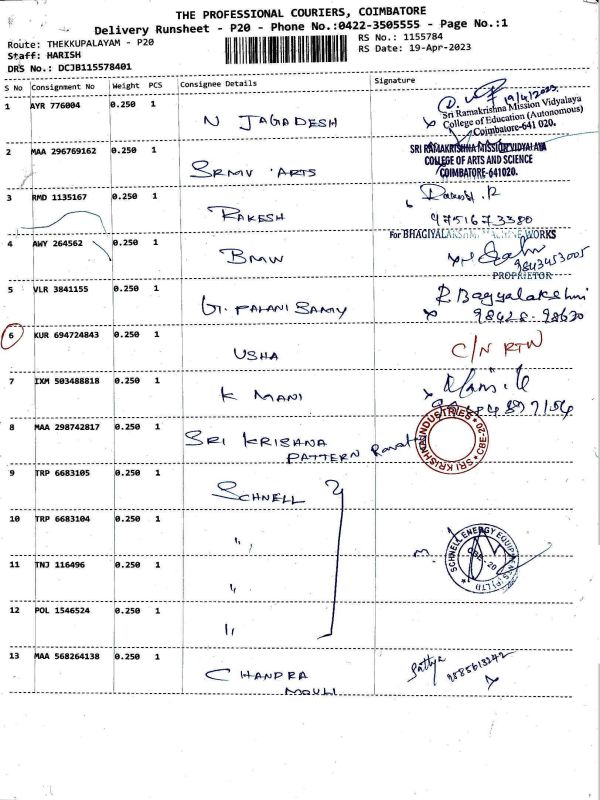 THE PROFESSIONAL COURIERS, COIMBATORE
Delivery Runsheet - P20 - Phone No.:0422-3505555 - Page No.:1
Route: THEKKUPALAYAM - P20
RS No.: 1155784
Staff: HARISH
RS Date: 19-Apr-2023
DRS No.: DCJB115578401
S No Consignment No Weight PCS Consignee Details Signature
1 AYR 776004 0.250 1 N JAGADESH
19/4/2023
Sri Ramakrishna Mission Vidyalaya
College of Education (Autonomous)
Coimbatore-641 020.
2 MAA 296769162 0.250 1 SRMV ARTS
SRI RAMAKRISHNA MISSION VIDYALAYA
COLLEGE OF ARTS AND SCIENCE
COIMBATORE-641020.
3 RMD 1135167 0.250 1 RAKESH
Rakesh.R
9751673380
4 AWY 264562 0.250 1 BMW
For BHAGIYALAKSHMI MACHINE WORKS
9843453005
PROPRIETOR
5 VLR 3841155 0.250 1 G. PALANI SAMY
R Bagyalakshmi
98428-98630
6 KUR 694724843 0.250 1 USHA
C/N RTN
7 IXM 503488818 0.250 1 K MANI
Mani.K
8 MAA 298742817 0.250 1 SRI KRISHNA
PATTERN
SRI KRISHNA INDUSTRIES * CBE-20 *
9 TRP 6683105 0.250 1 SCHNELL
10 TRP 6683104 0.250 1 "
SCHNELL ENERGY EQUIPMENTS (P) LTD
CBE-20
11 TNJ 116496 0.250 1 "
12 POL 1546524 0.250 1 "
13 MAA 568264138 0.250 1 CHANDRA
MOULI
Sathya
9885613242